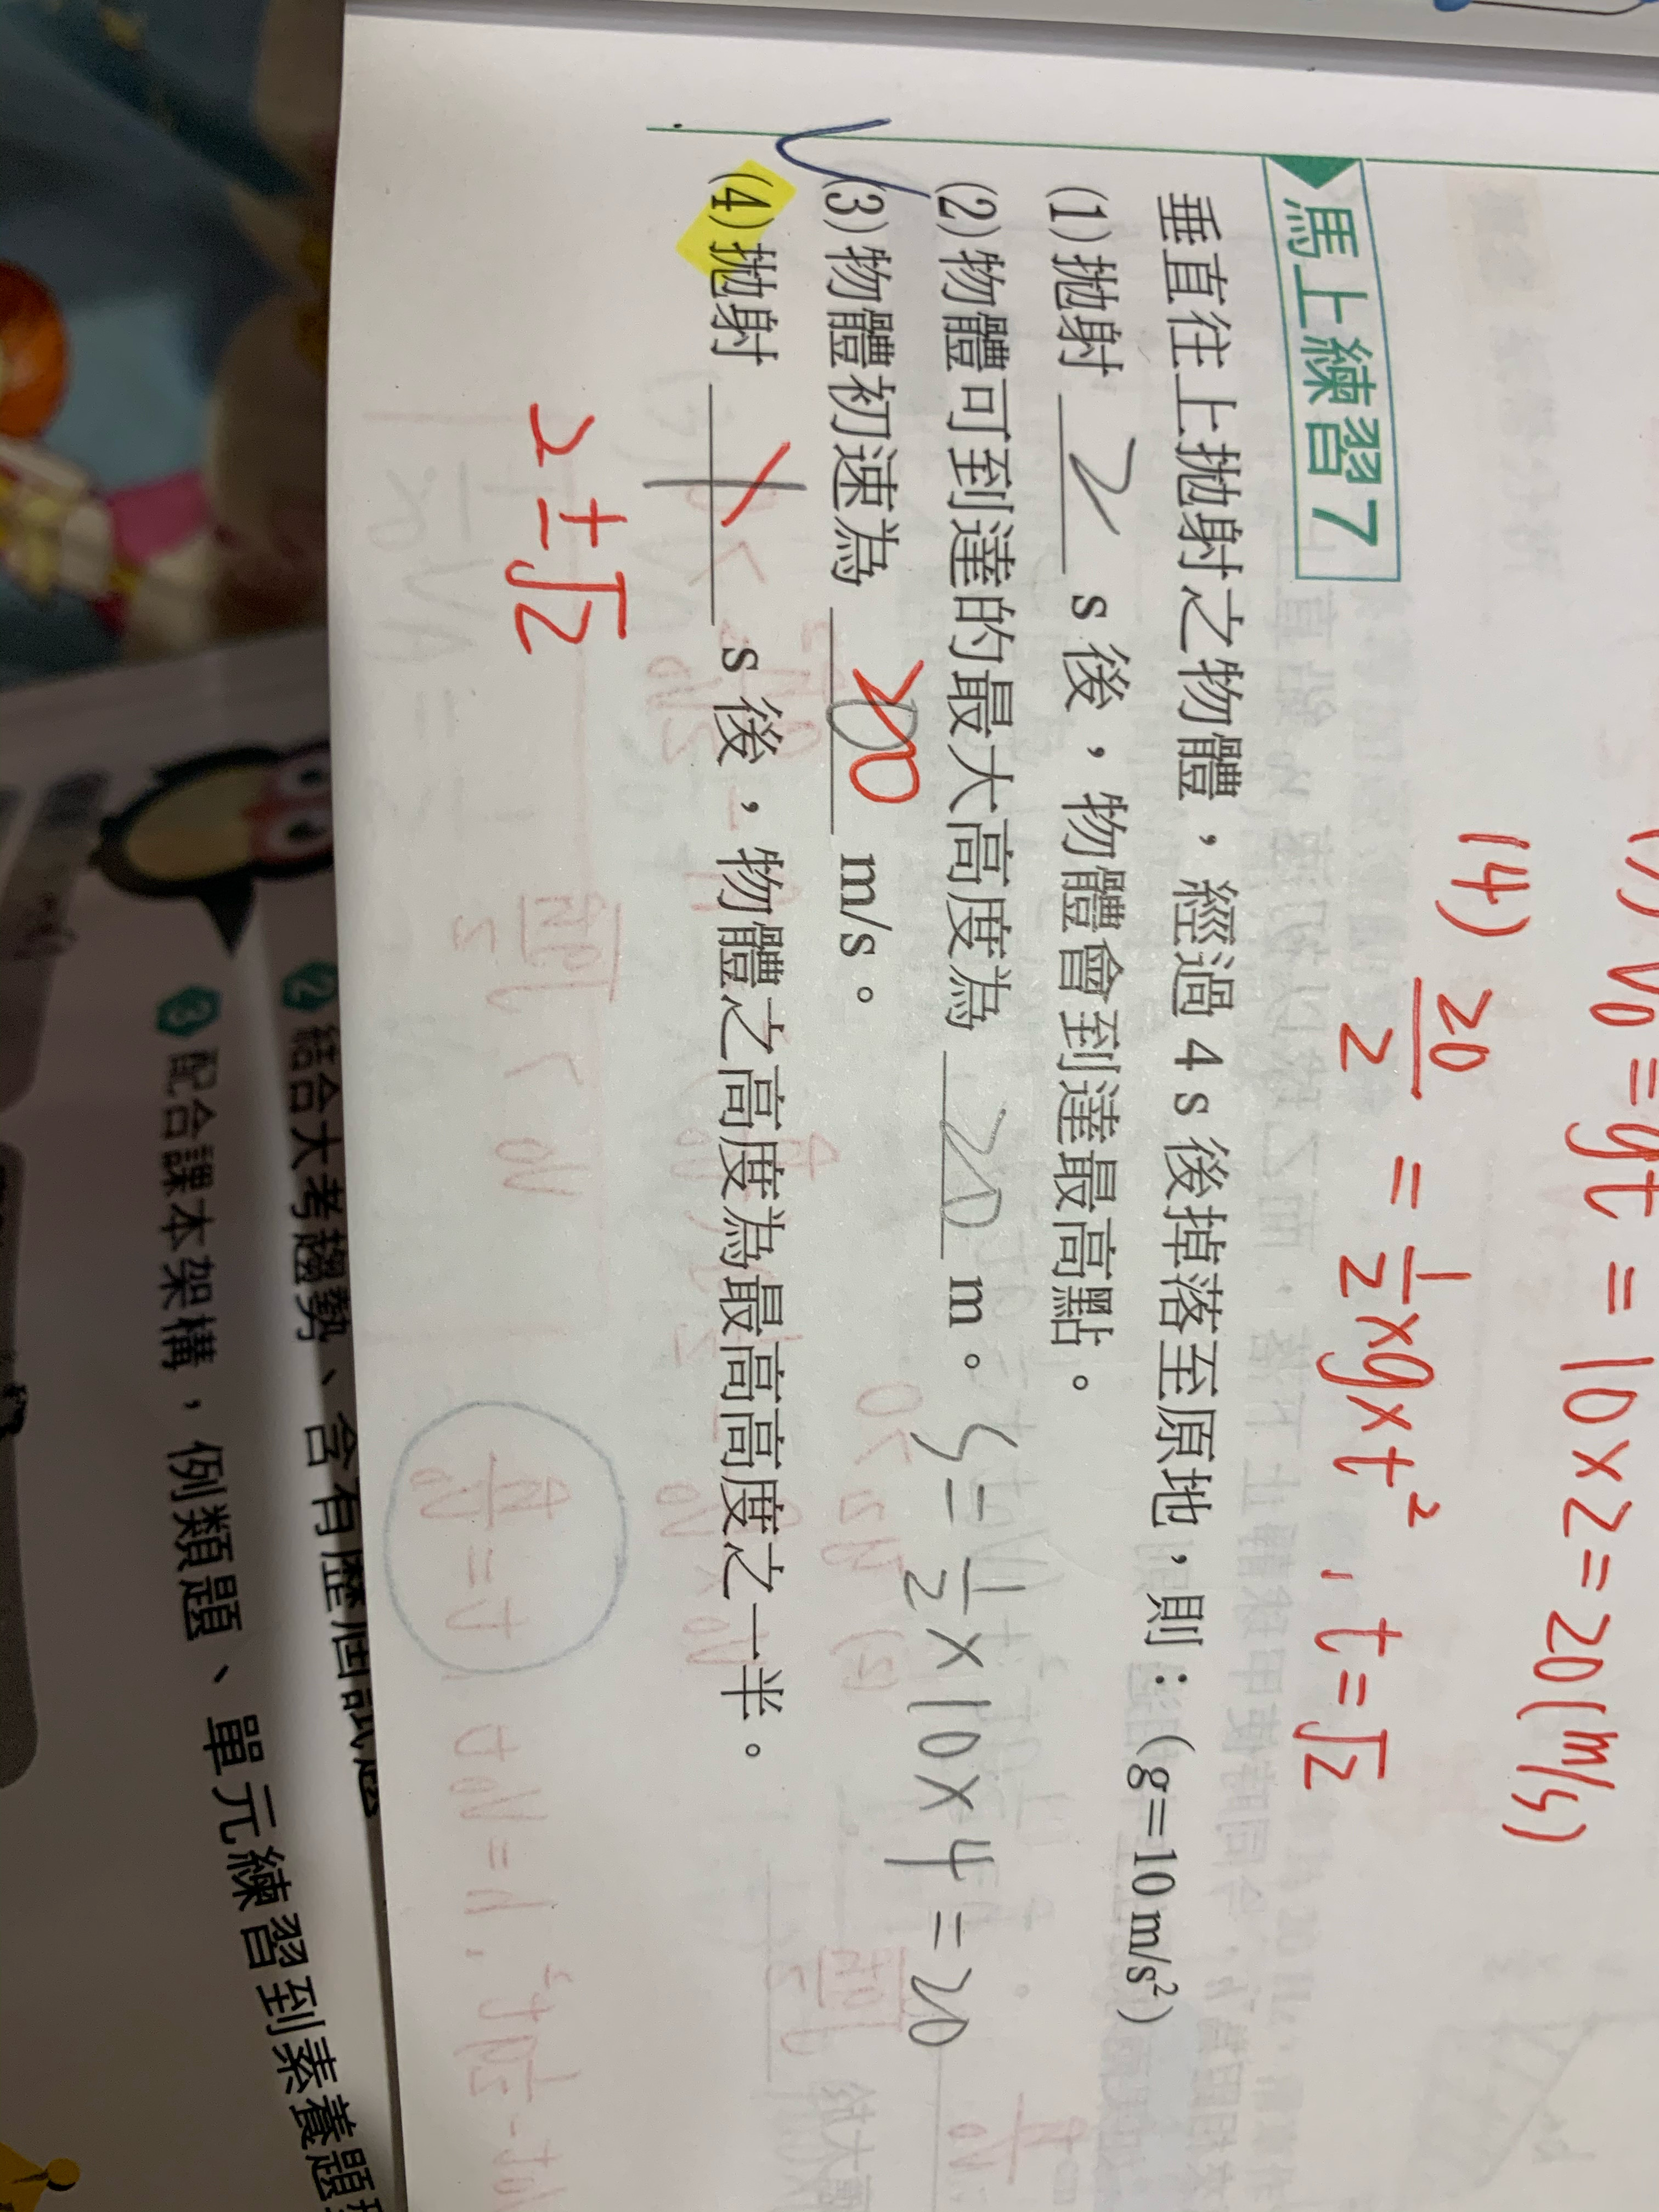 (3) V₀ = gt = 10 × 2 = 20 (m/s)
(4) 20/2 = 1/2 × g × t² , t = √2
馬上練習7
垂直往上拋射之物體，經過 4 s 後掉落至原地，則：（g＝10 m/s²）
(1)拋射 2 s 後，物體會到達最高點。
(2)物體可到達的最大高度為 20 m。 S = 1/2 × 10 × 4 = 20
(3)物體初速為 20 m/s。
(4)拋射 1 s 後，物體之高度為最高高度之一半。
2 ± √2
2 結合大考趨勢、含有歷屆試題
3 配合課本架構，例類題、單元練習到素養題